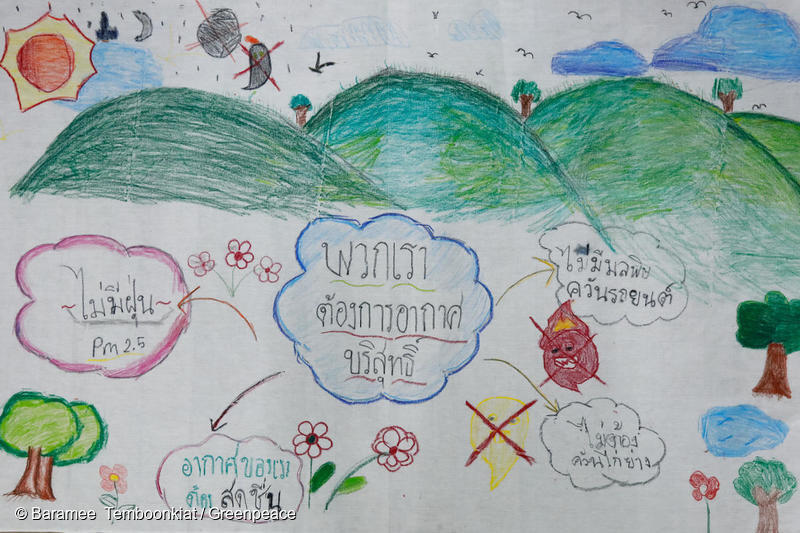 พวกเรา
ต้องการอากาศ
บริสุทธิ์
~ไม่มีฝุ่น~
Pm 2.5
ไม่มีมลพิษ
ควันรถยนต์
อากาศของเรา
ต้อง สดชื่น
ไม่ต้อง
ควันไก่ย่าง
© Baramee Temboonkiat / Greenpeace